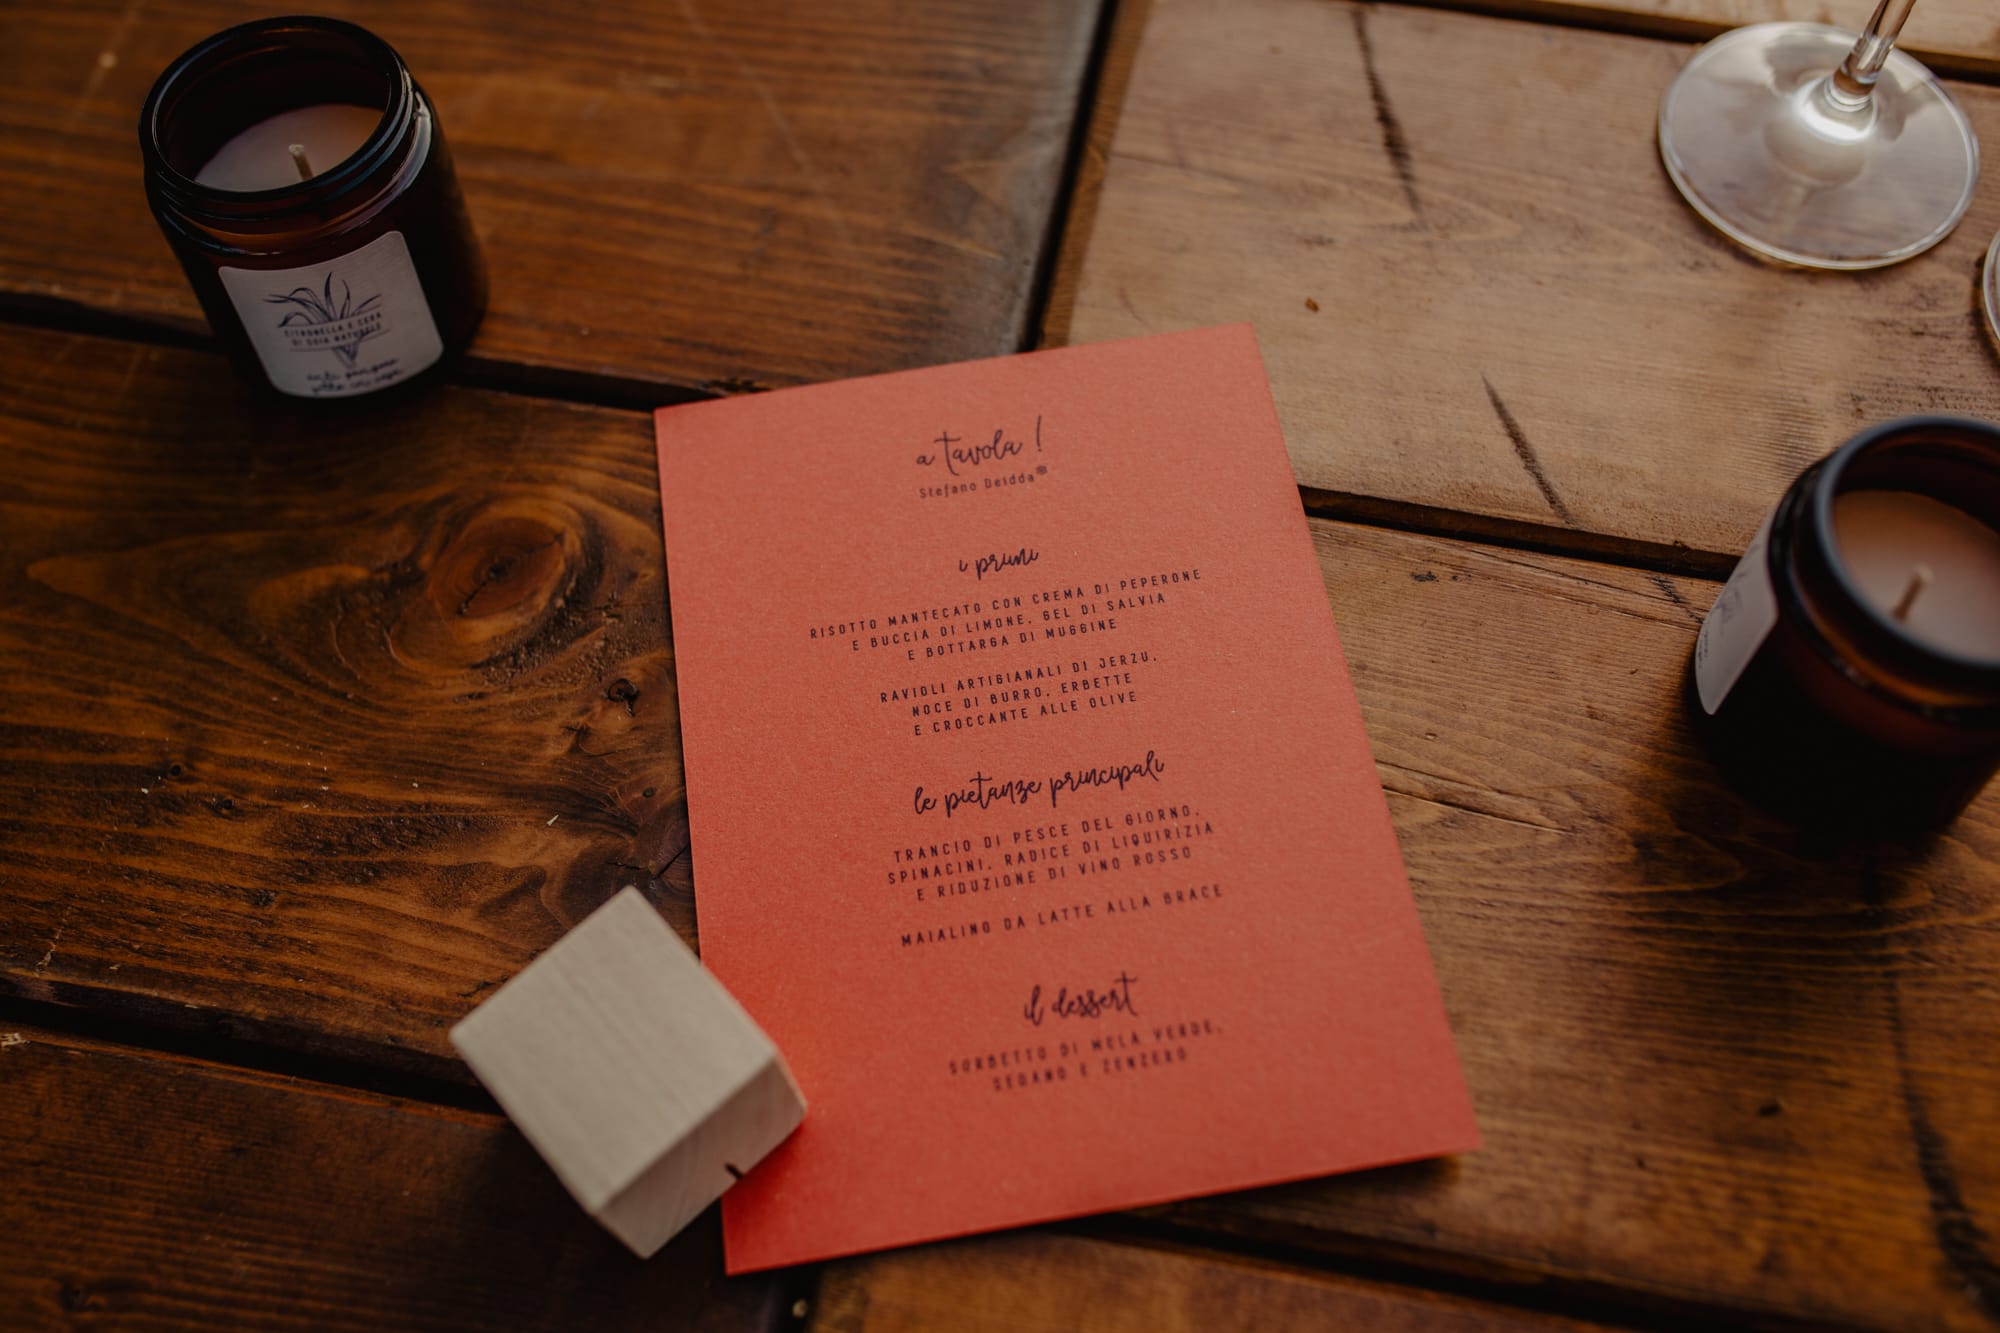 CITRONELLA E CERA
DI SOIA NATURALE
a tavola !
Stefano Deidda
i primi
RISOTTO MANTECATO CON CREMA DI PEPERONE
E BUCCIA DI LIMONE, GEL DI SALVIA
E BOTTARGA DI MUGGINE
RAVIOLI ARTIGIANALI DI JERZU,
NOCE DI BURRO, ERBETTE
E CROCCANTE ALLE OLIVE
le pietanze principali
TRANCIO DI PESCE DEL GIORNO,
SPINACINI, RADICE DI LIQUIRIZIA
E RIDUZIONE DI VINO ROSSO
MAIALINO DA LATTE ALLA BRACE
il dessert
SORBETTO DI MELA VERDE,
SEDANO E ZENZERO